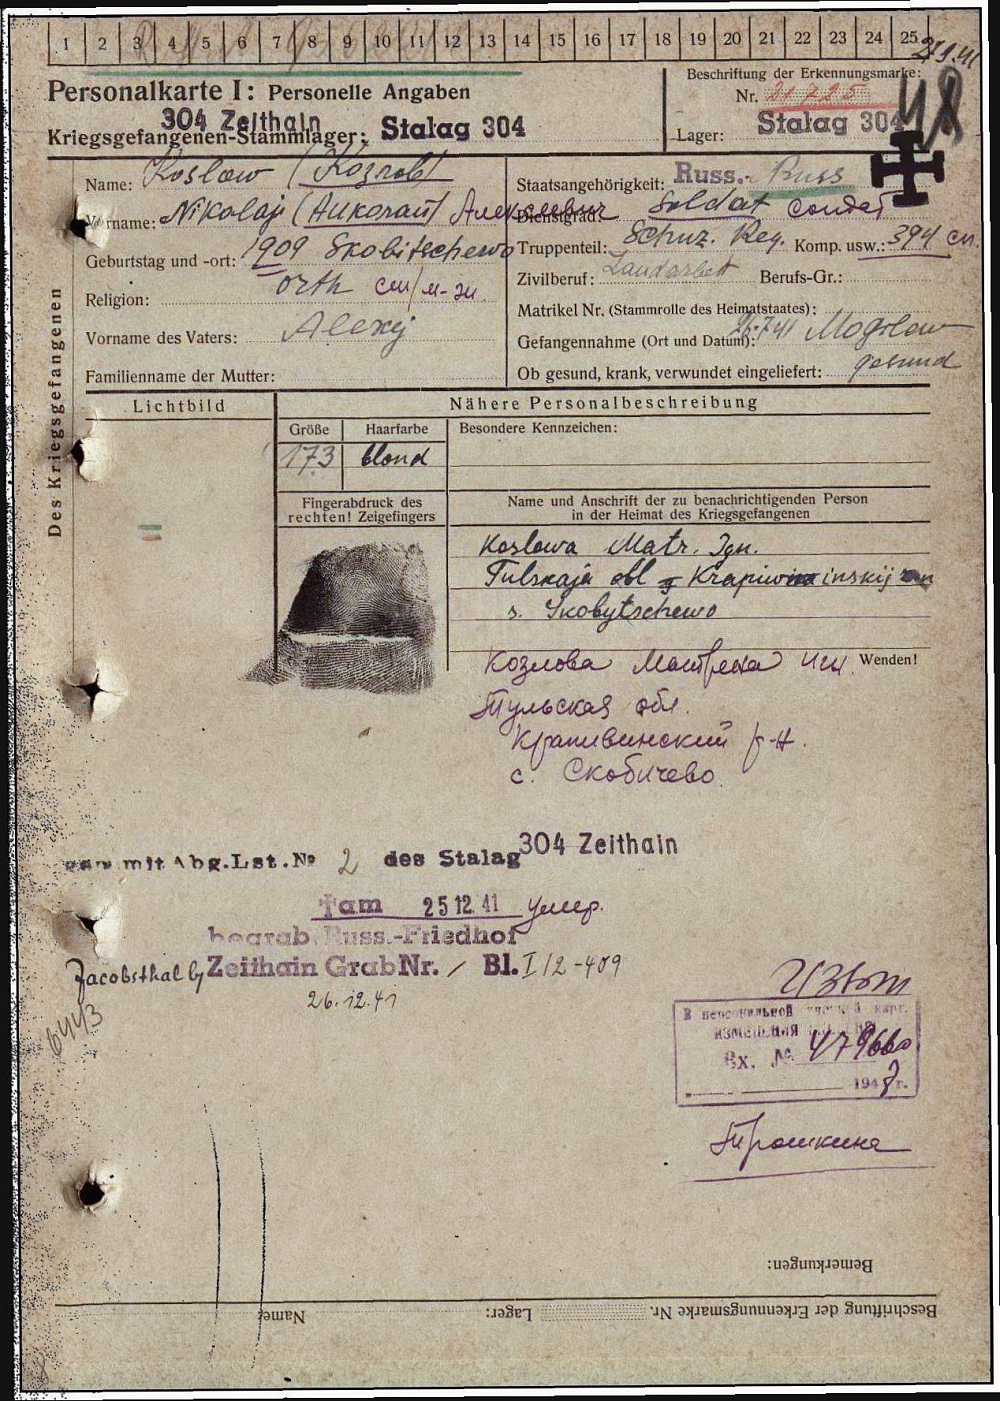 1 2 3 4 5 6 7 8 9 10 11 12 13 14 15 16 17 18 19 20 21 22 23 24 25
Personalkarte I: Personelle Angaben
304 Zeithain
Kriegsgefangenen-Stammlager: Stalag 304
Beschriftung der Erkennungsmarke:
Nr. 21725
Lager: Stalag 304
48
Des Kriegsgefangenen
Name: Koslow (Козлов)
Vorname: Nikolaj (Николай) Алексеевич
Geburtstag und -ort: 1909 Skobitschewo
Religion: orth
Vorname des Vaters: Alexej
Familienname der Mutter:
Staatsangehörigkeit: Russ.- Russ
Dienstgrad: Soldat солдат
Truppenteil: Schuz. Reg. Komp. usw.: 394 сп.
Zivilberuf: Landarbeit Berufs-Gr.:
Matrikel Nr. (Stammrolle des Heimatstaates):
Gefangennahme (Ort und Datum): 26.7.41 Mogilew
Ob gesund, krank, verwundet eingeliefert: gesund
Lichtbild
Nähere Personalbeschreibung
Größe Haarfarbe Besondere Kennzeichen:
173 blond
Fingerabdruck des
rechten! Zeigefingers
Name und Anschrift der zu benachrichtigenden Person
in der Heimat des Kriegsgefangenen
Koslowa Matr. Ign.
Tulskaja obl Krapiwinskij
s. Skobytschewo
Wenden!
Козлова Матрена Игн.
Тульская обл.
Крапивинский р-н.
с. Скобичево
mit Abg.Lst.№ 2 des Stalag 304 Zeithain
†am 25.12.41 умер.
begrab. Russ.-Friedhof
Jacobsthal by Zeithain Grab Nr. / Bl. I/2-409
26.12.41
6443
В персональной
ИЗМЕНЕНИЯ
Вх. №
194 г.
Трошкина
Bemerkungen:
Name: Lager: Beschriftung der Erkennungsmarke Nr.